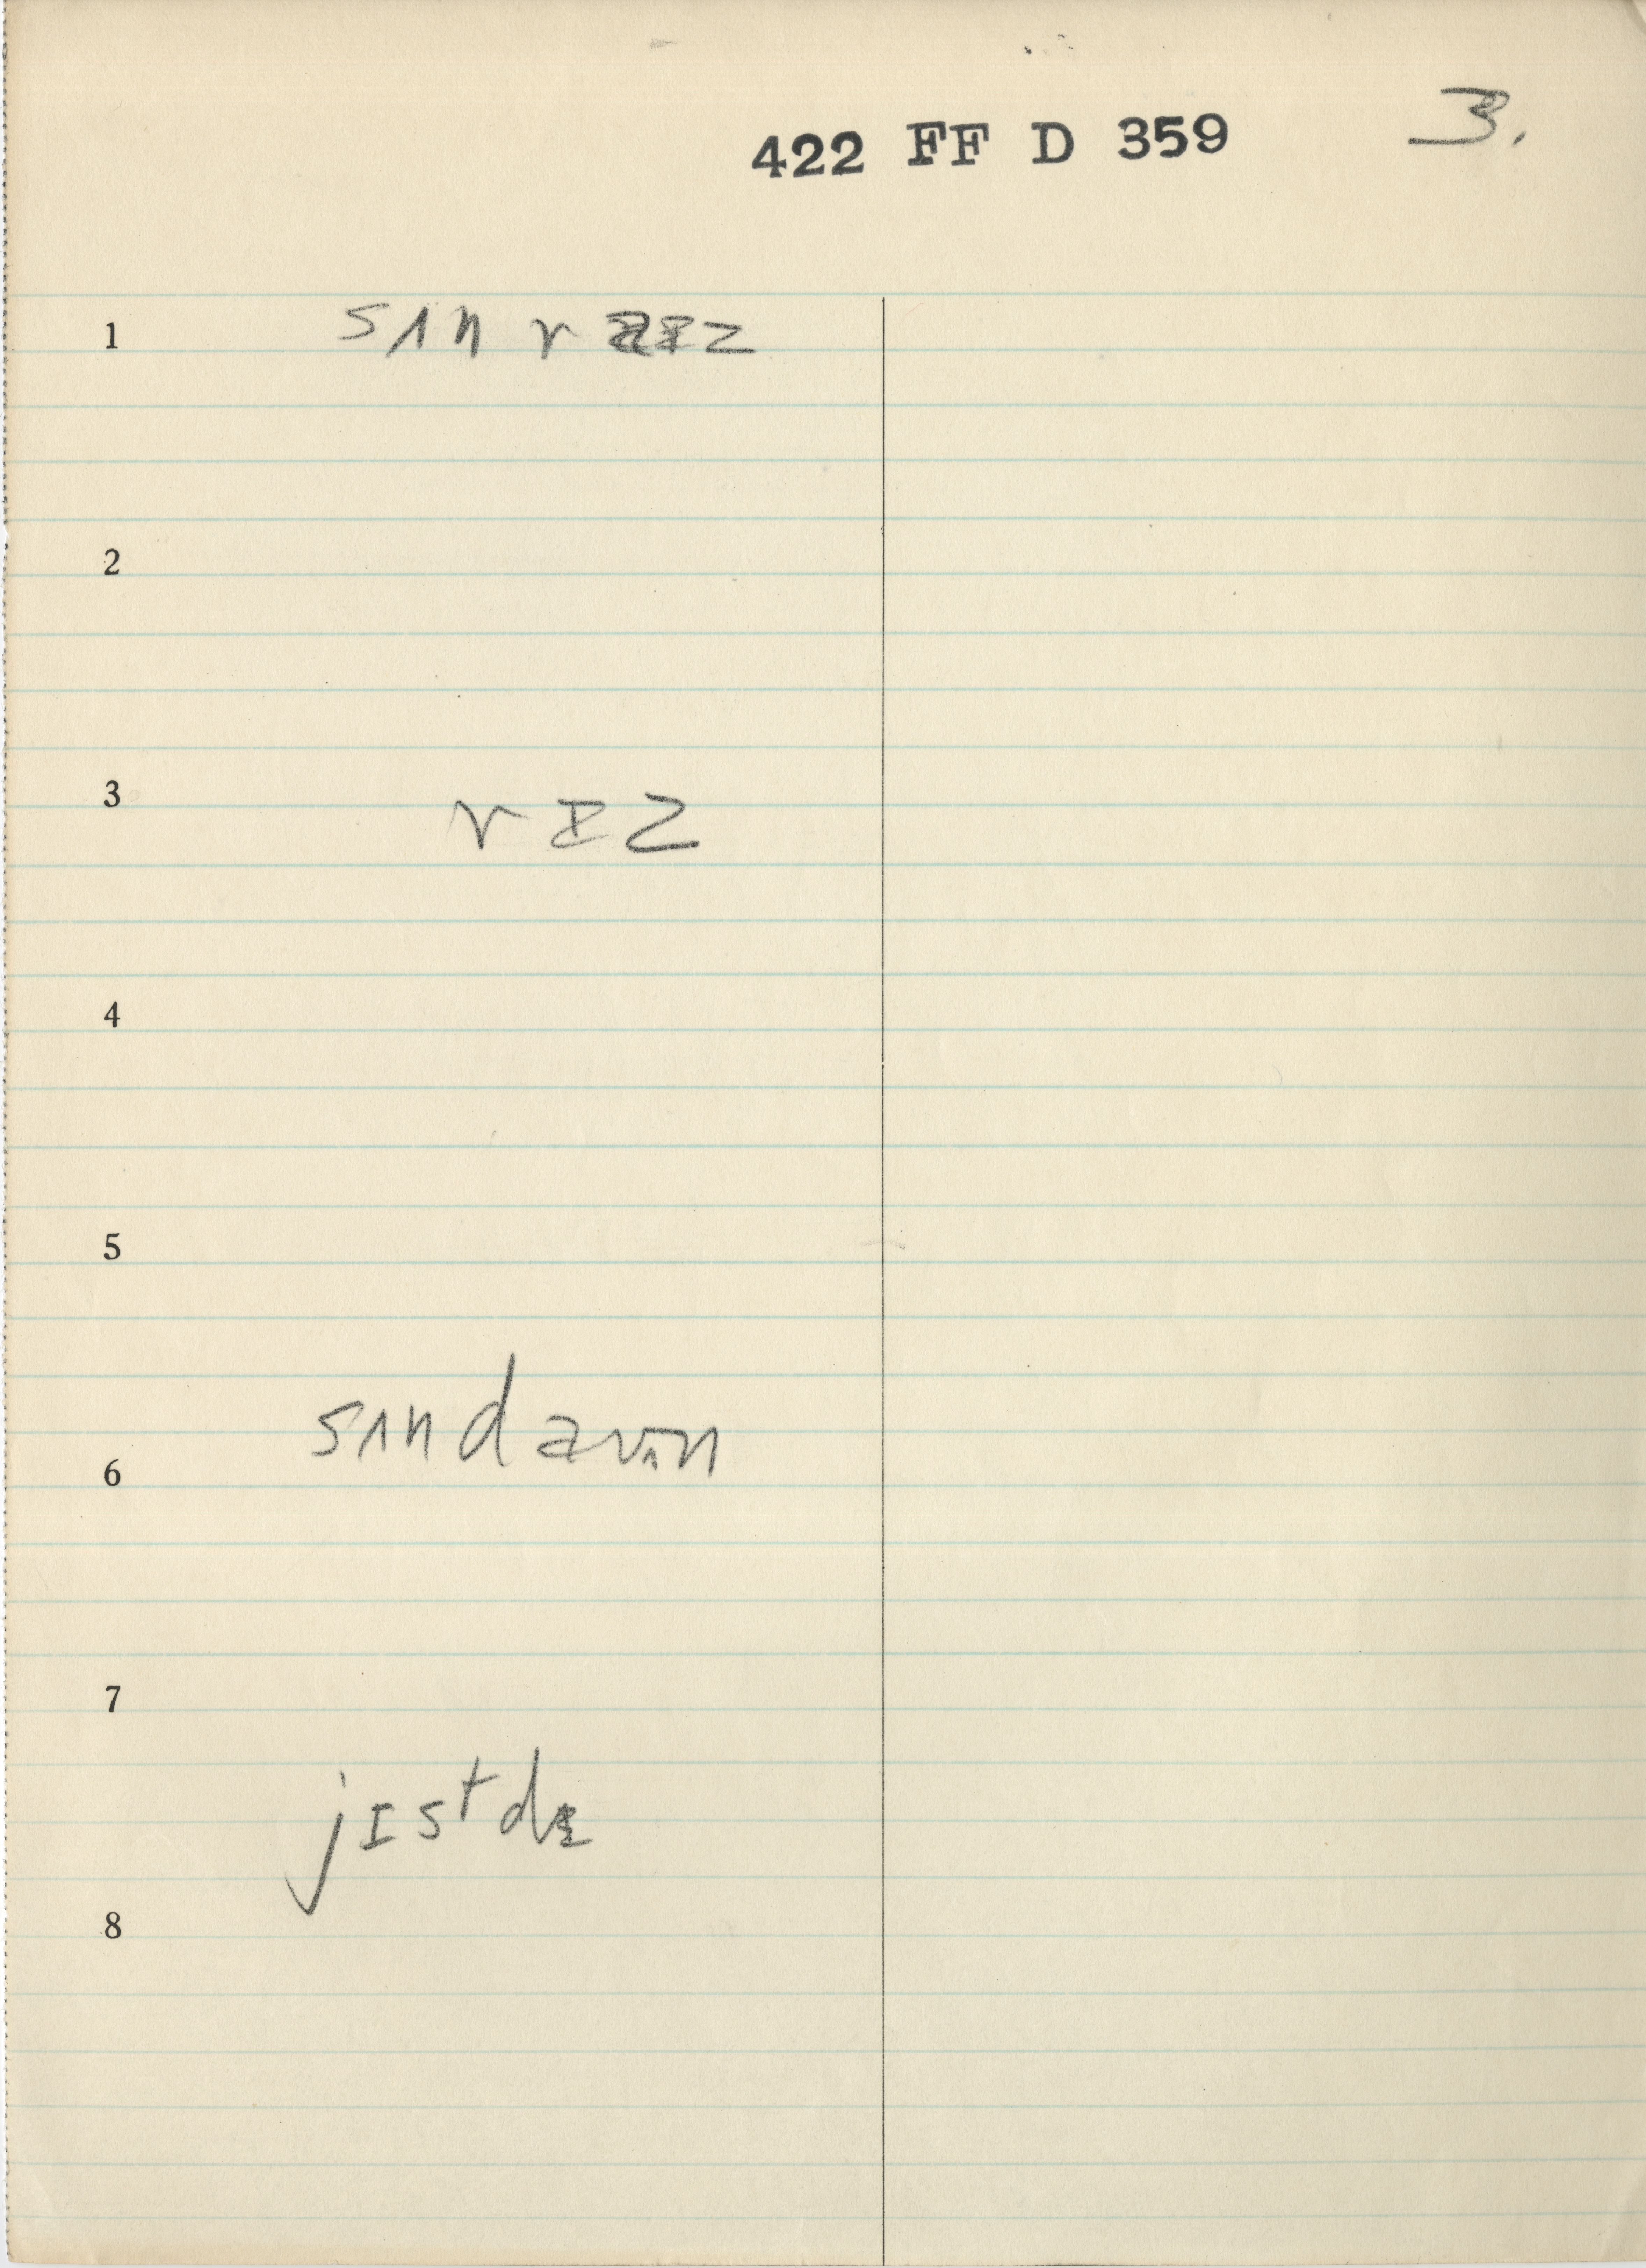 422 FF D 359 3.
1 sʌn r aɪz
2
3 r ɪ z
4
5
6 sʌndaʊn
7
jɪstdɛ
8